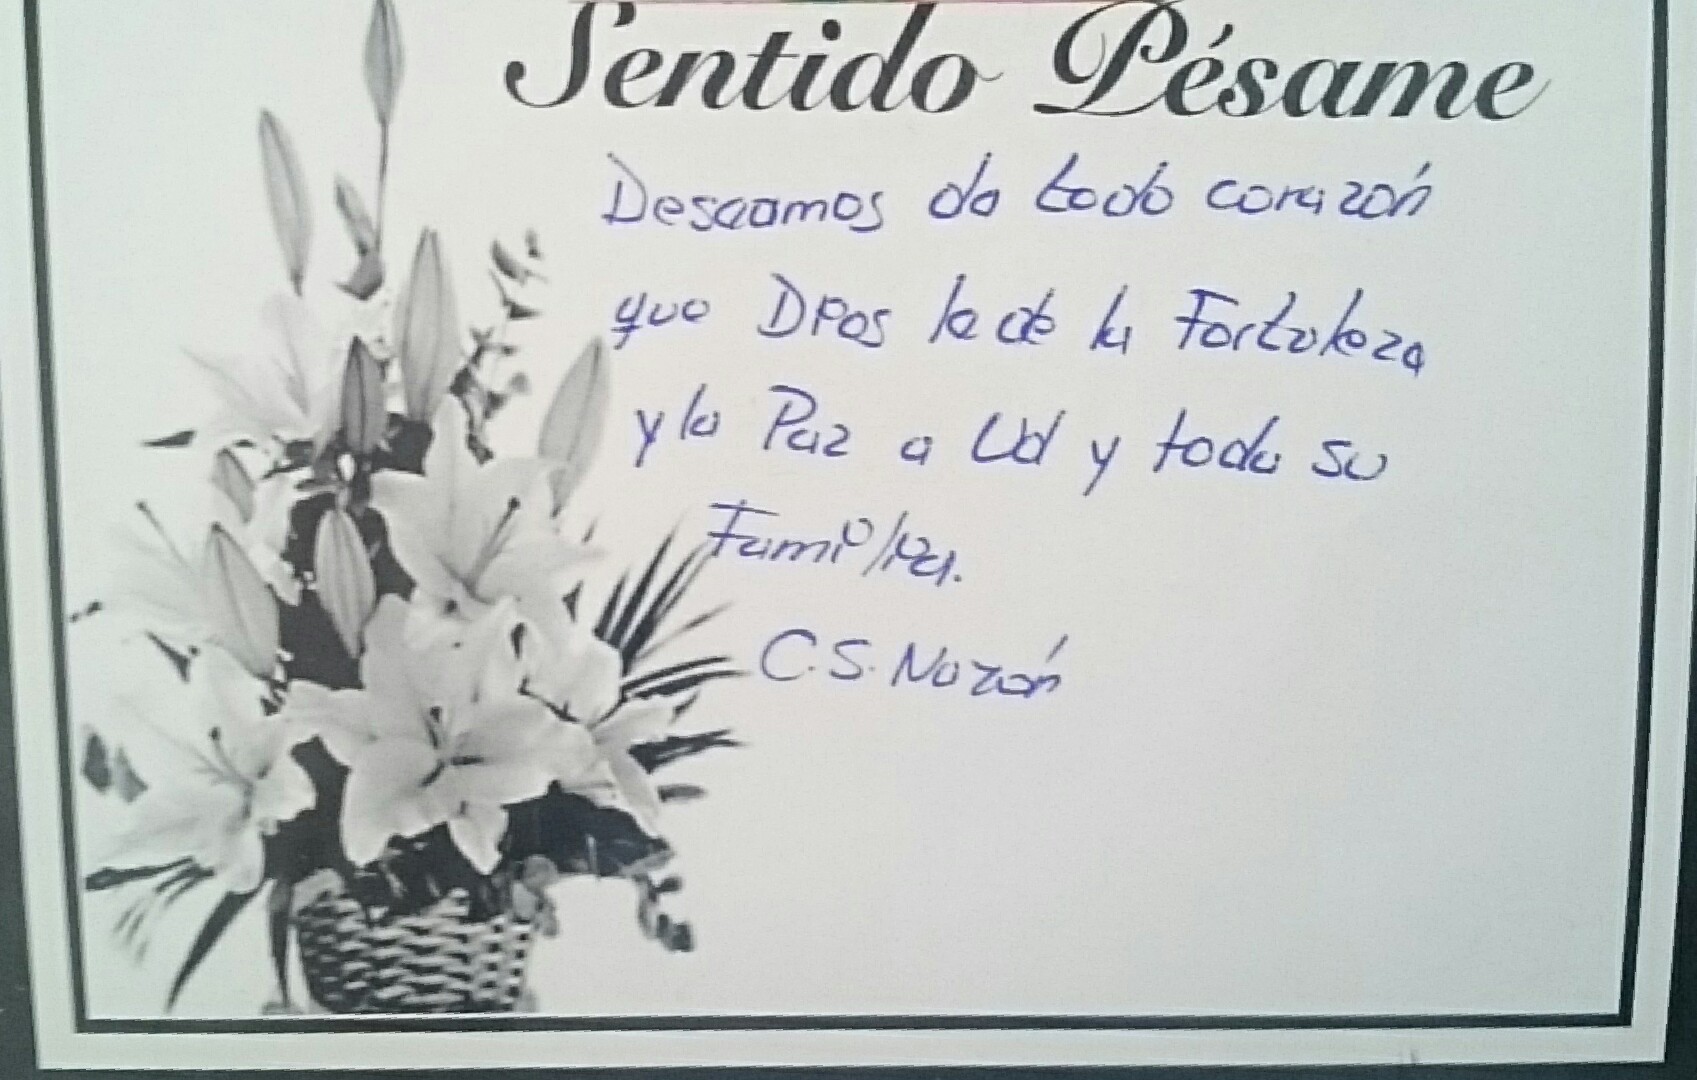 Sentido Pésame
Deseamos de todo corazón
que Dios le de la Fortaleza
y la Paz a Ud y toda su
Familia.
C.S. Nazón